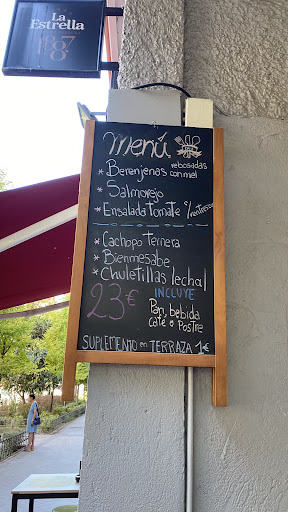 La
Estrella
1887
Menú
rebosadas
* Berenjenas con miel
* Salmorejo
* Ensalada tomate c/ventresca
* Cachopo ternera
* Bienmesabe
* Chuletillas lechal
23€
INCLUYE
Pan, bebida
café o Postre
SUPLEMENTO en TERRAZA 1€